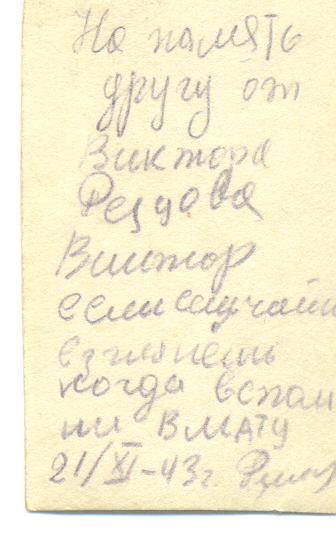 На память
другу от
Виктора
Резцова
Виктор
если случай
взглянешь
когда вспом
ни ВМАТУ
21/XI-43г.